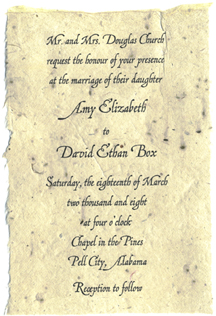 Mr. and Mrs. Douglas Church
request the honour of your presence
at the marriage of their daughter
Amy Elizabeth
to
David Ethan Box
Saturday, the eighteenth of March
two thousand and eight
at four o'clock
Chapel in the Pines
Pell City, Alabama
Reception to follow